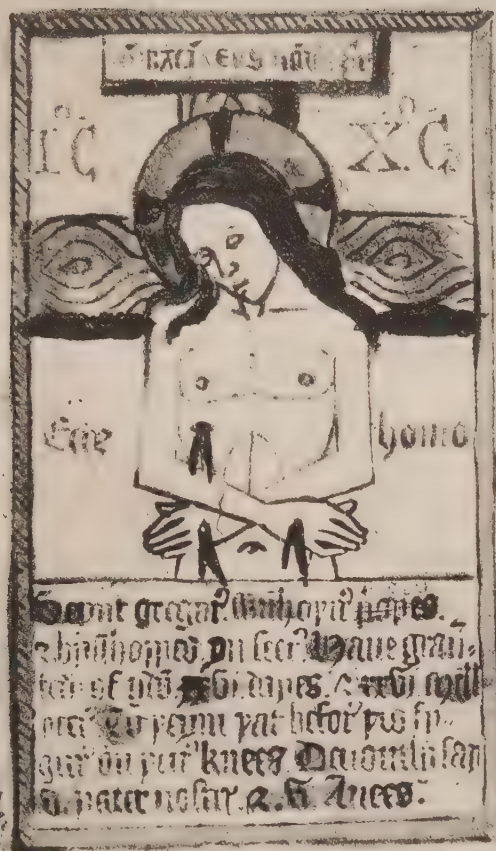 BACIΛEVS
IC XC
Ecce homo
Seynt gregor' with oþir' popes
& bysshoppes yn feer' Haue graun-
ted of dayes & xxvj mill
yeer' To þeym þat befor' þis fy-
gur' on þeir' knees Deuoutly say
v. pater noster & v. Auees.